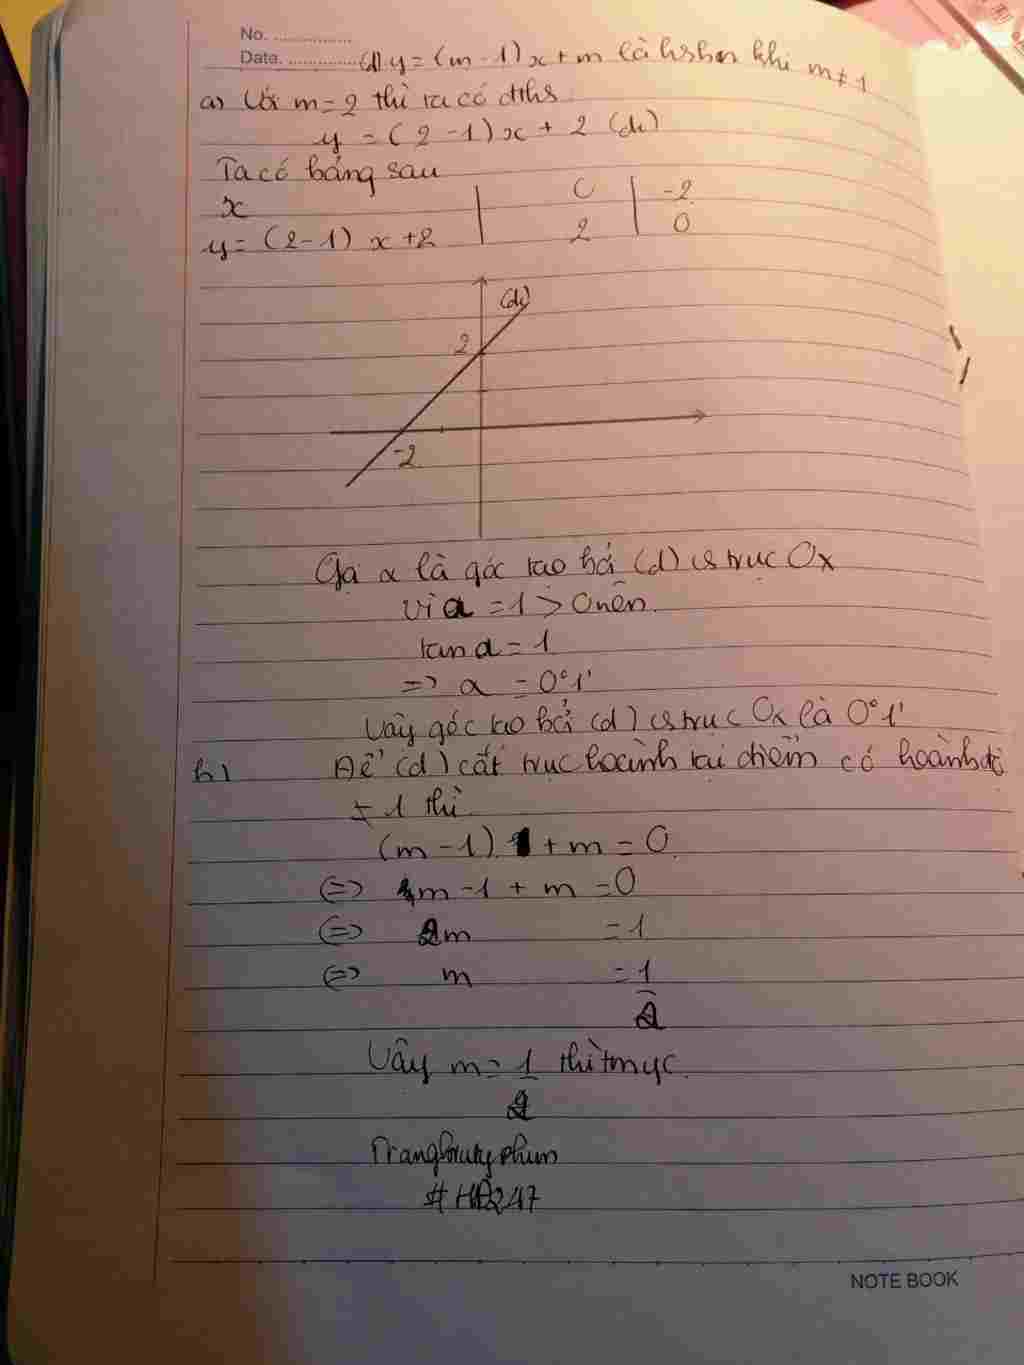 No. ................
Date. ..............
(d) y = (m - 1) x + m là hsbn khi m ≠ 1
a) Với m = 2 thì ta có đths
y = (2 - 1) x + 2 (d)
Ta có bảng sau
x | 0 | -2
y = (2 - 1) x + 2 | 2 | 0
(d)
2
-2
Gọi α là góc tạo bởi (d) vs trục Ox
Vì a = 1 > 0 nên
tan α = 1
=> α = 0°1'
Vậy góc tạo bởi (d) vs trục Ox là 0°1'
b) Để (d) cắt trục hoành tại điểm có hoành độ
= 1 thì
(m - 1) 1 + m = 0
<=> m - 1 + m = 0
<=> 2m = 1
<=> m = 1/2
Vậy m = 1/2 thì tmyc
#HĐ247
NOTE BOOK